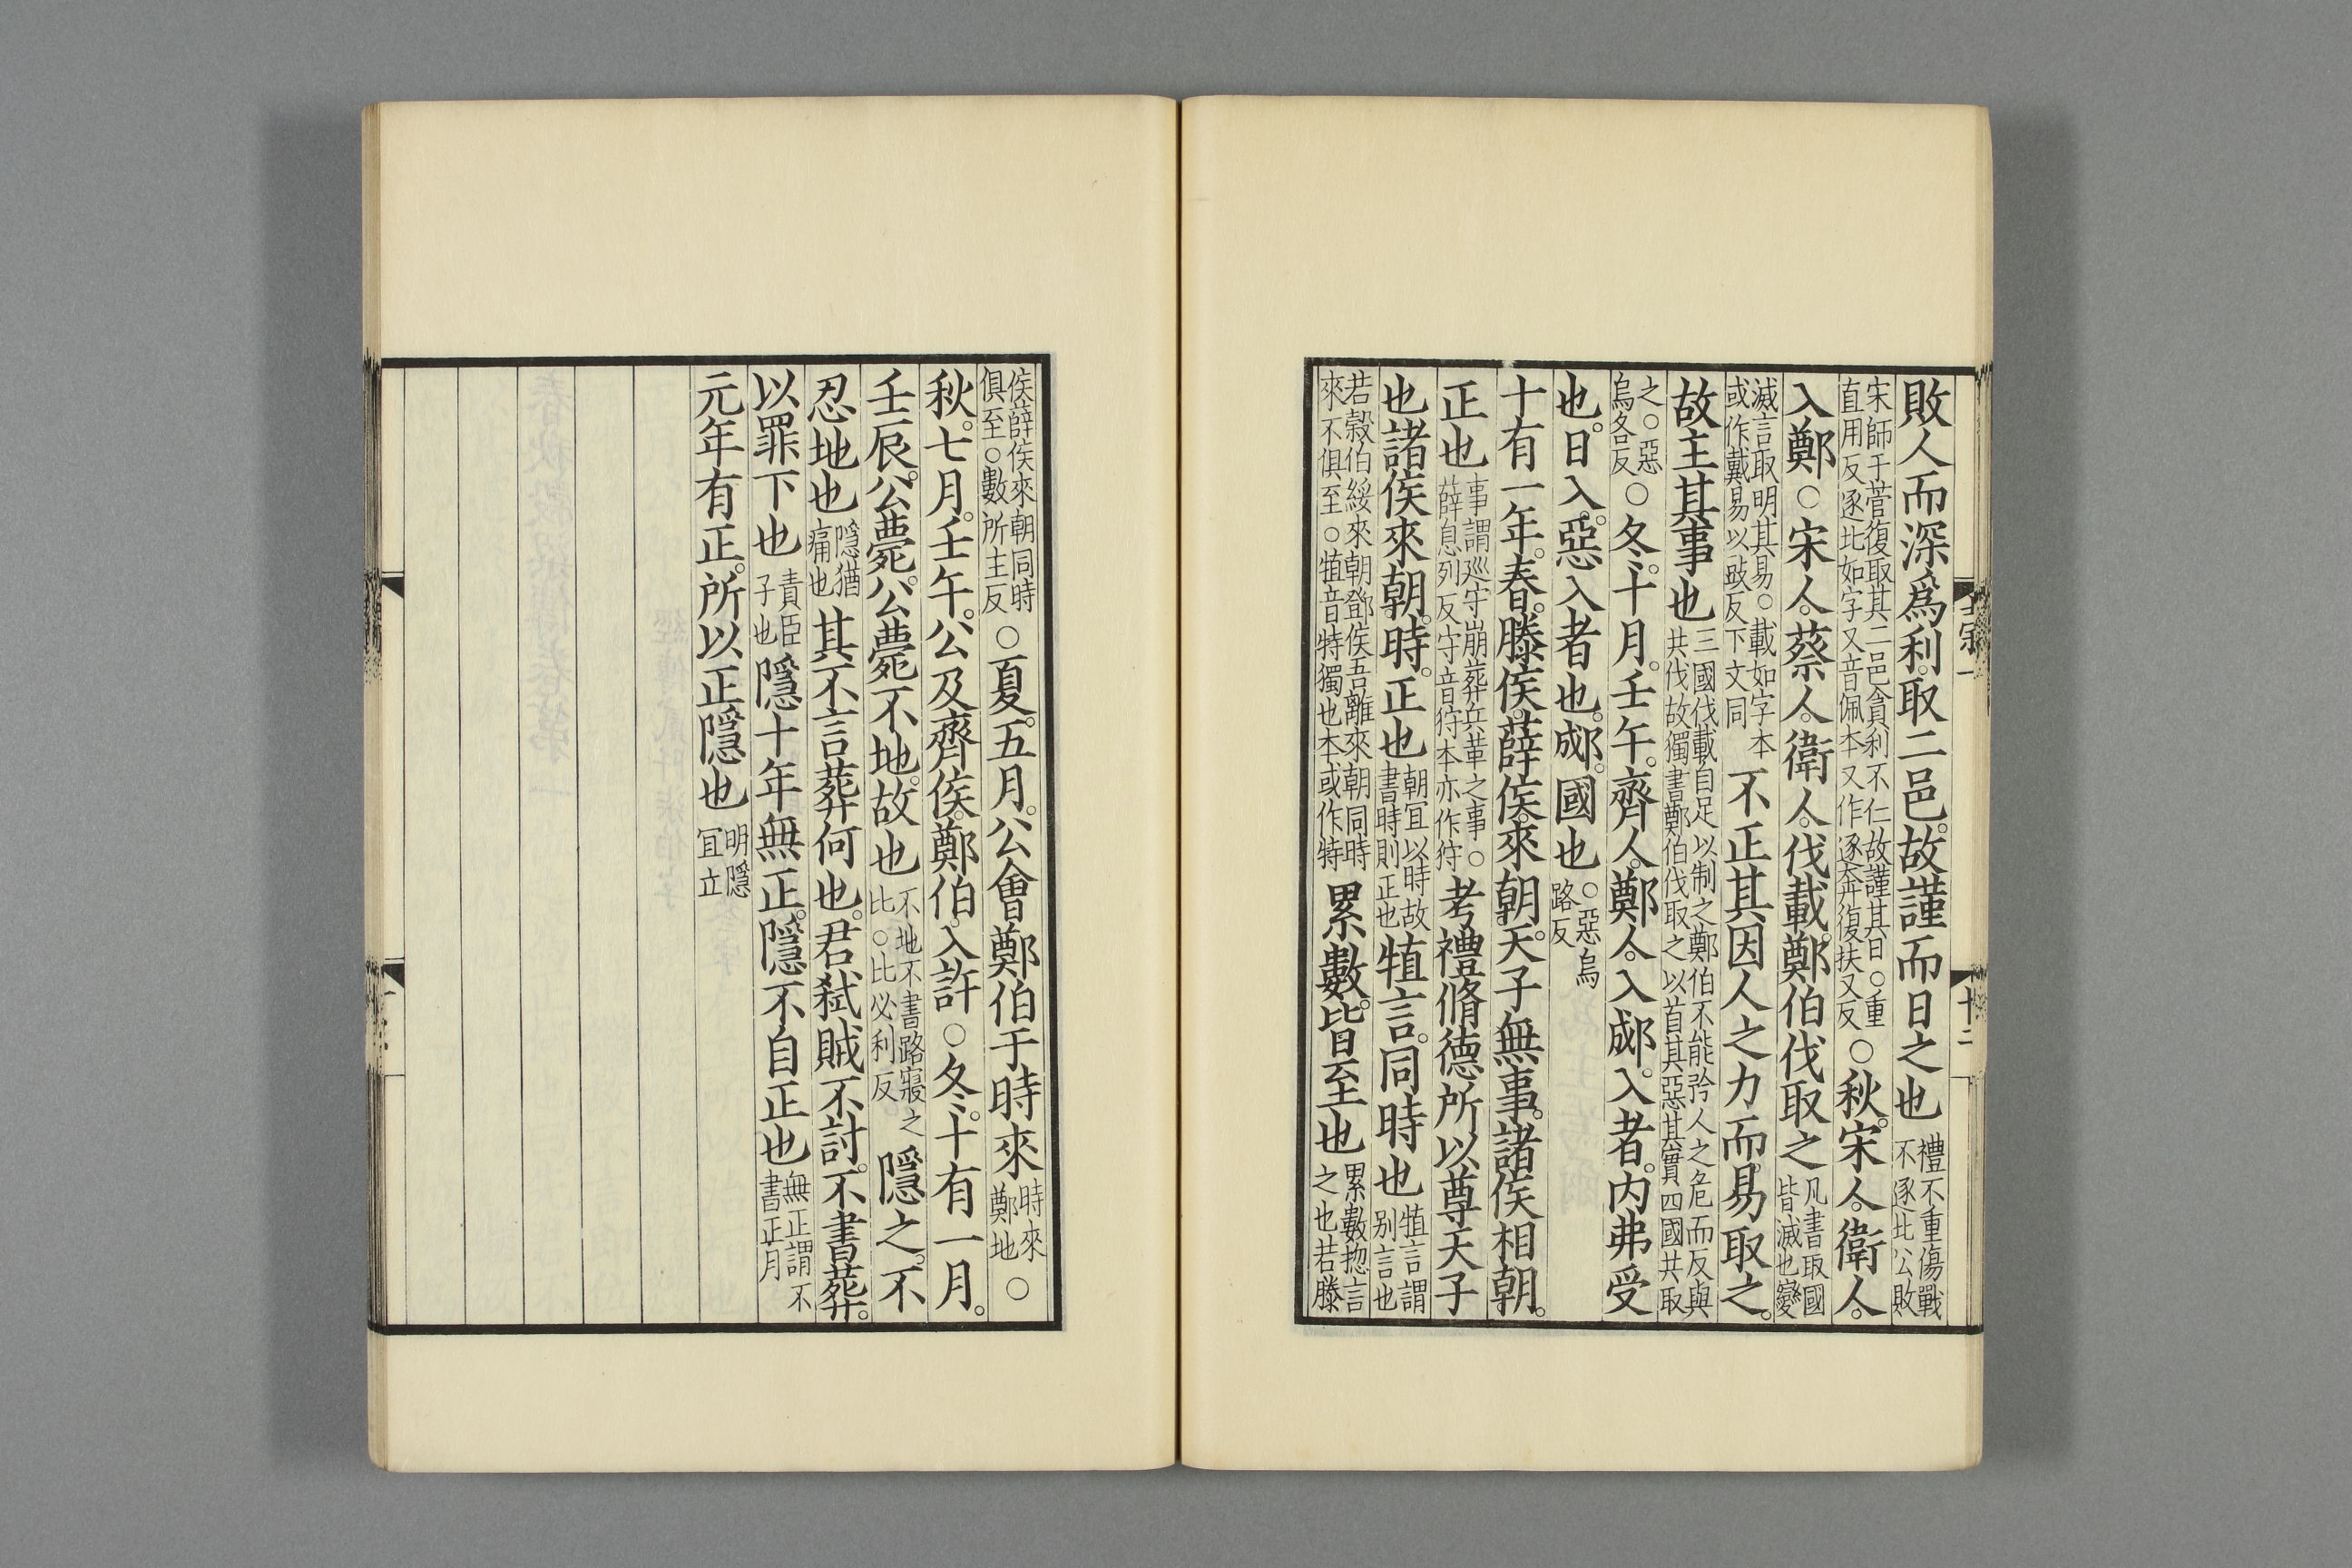 敗人而深爲利。取二邑。故謹而日之也禮不重傷戰不逐北公敗
宋師于菅復取其二邑貪利不仁故謹其日○重直用反逐北如字又音佩本又作逐奔復扶又反○秋。宋人。衛人。
入鄭○宋人。蔡人。衛人。伐載。鄭伯伐取之凡書取國皆滅也變
滅言取明其易○載如字本或作戴易以豉反下文同不正其因人之力而易取之。
故主其事也三國伐載自足以制之鄭伯不能矜人之危而反與共伐故獨書鄭伯伐取之以首其惡其實四國共取
之○惡烏各反○冬。十月。壬午。齊人。鄭人。入郕。入者。内弗受
也。日入。惡入者也。郕。國也○惡烏路反
十有一年。春。滕侯。薛侯。來朝。天子無事。諸侯相朝。
正也事謂巡守崩葬兵革之事○薛息列反守音狩本亦作狩考禮脩德所以尊天子
也諸侯來朝。時。正也朝宜以時故書時則正也犆言。同時也犆言謂别言也
若穀伯綏來朝鄧侯吾離來朝同時來不俱至○犆音特獨也本或作特累數。皆至也累數揔言之也若滕
侯薛侯來朝同時俱至○數所主反○夏。五月。公會鄭伯于時來時來鄭地○
秋。七月。壬午。公及齊侯。鄭伯。入許○冬。十有一月。
壬辰。公薨。公薨不地。故也不地不書路寢之比○比必利反隱之。不
忍地也隱猶痛也其不言葬何也。君弑賊不討。不書葬。
以罪下也責臣子也隱十年無正。隱不自正也無正謂不書正月
元年有正。所以正隱也明隱宜立